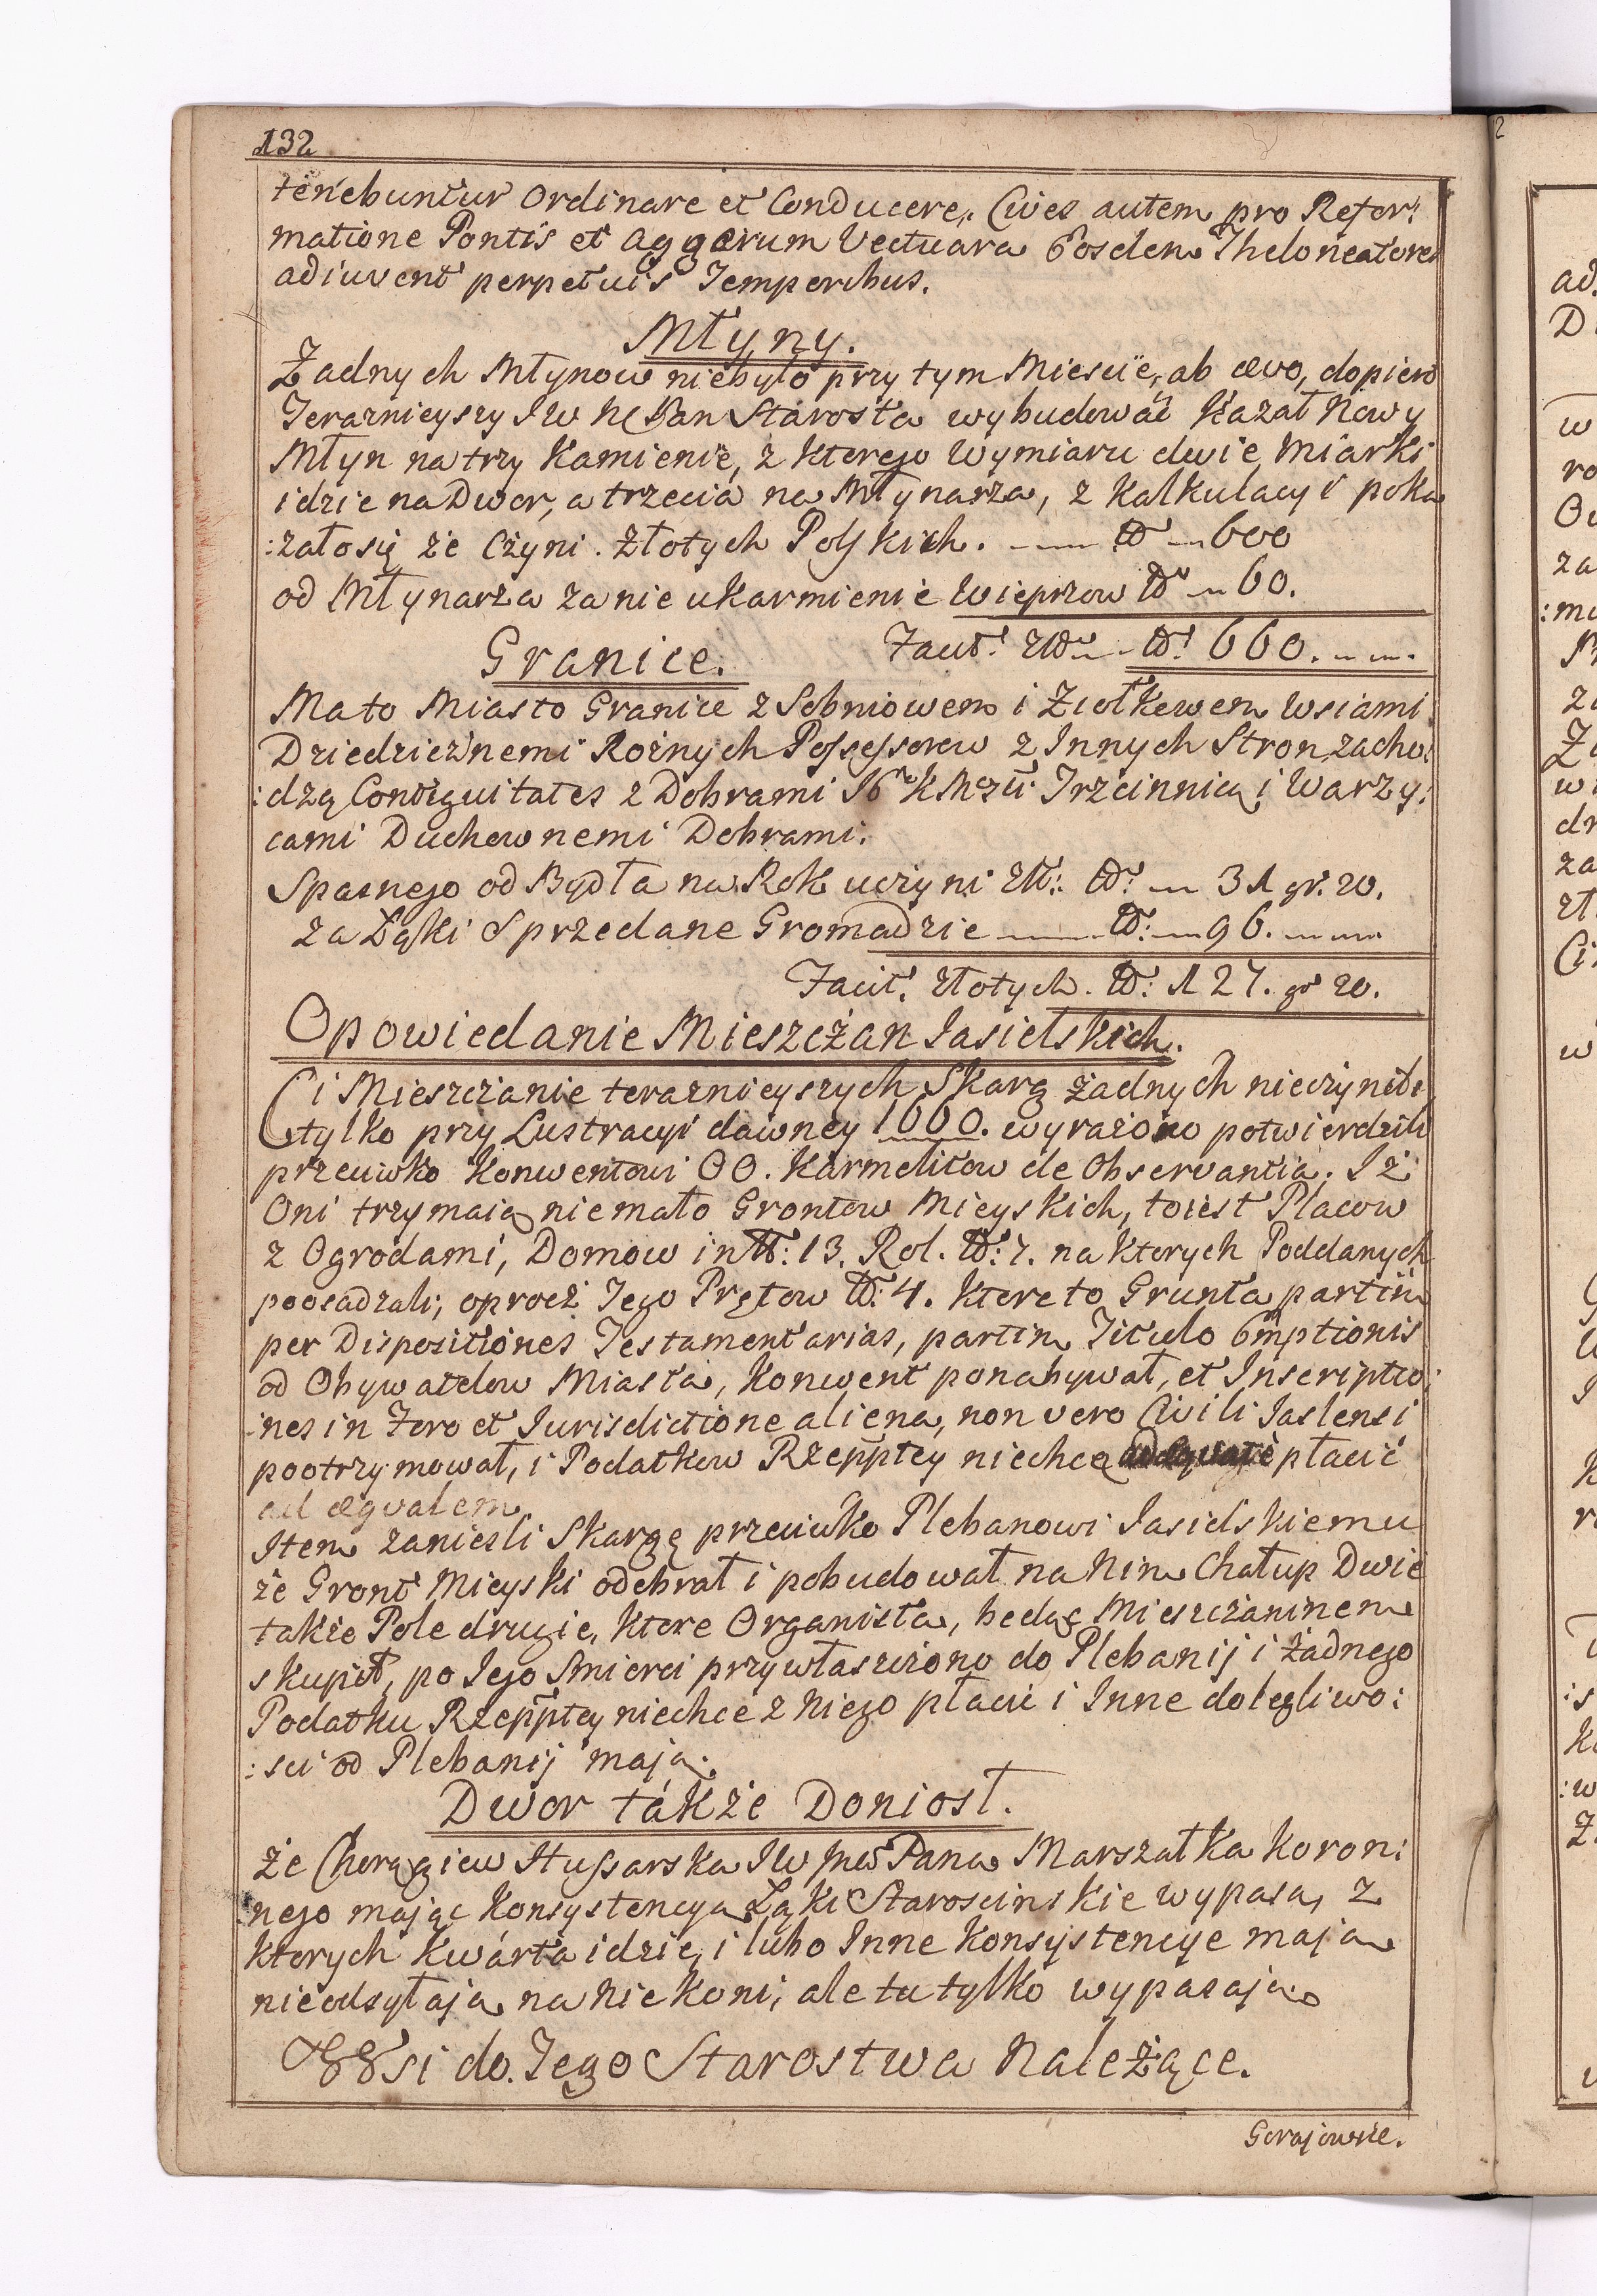 132
tenebuntur Ordinare et Conducere, Cives autem pro Refor:
matione Pontis et aggerum Vectuara Eosdem Theloneatores
adiuvent perpetuis Temporibus.
Młyny.
Żadnych Młynow niebyło przy tym Miescie, ab ævo, dopiero
Teraznieyszy JW Pan Starosta wybudować Kazał Nowy
Młyn na trzy Kamienie, z ktorego Wymiaru dwie Miarki
idzie na Dwor, a trzecia na Młynarza, z Kalkulacyi poka
:załosię że Czyni Złotych Polskich. No 600
od Młynarza za nie ukarmienie Wieprzow No 60.
Granice. Facit. Zło No 660.
Mato Miasto Granice z Sobniowem i Ziołkowem Wsiami
Dziedzicznemi Rożnych Possessorow z Innych Stron zacho:
:dzą Contiguitates z Dobrami Trzcinnicą i Warzy:
cami Duchownemi Dobrami.
Spasnego od Bydła na Rok uczyni Zł: No 31 gr. 20.
za Łąki Sprzedane Gromadzie No: 96.
Facit. złotych. No: 127. gr 20.
Opowiedanie Mieszczan Jasielskich.
Ci Mieszczanie teraznieyszych Skarg żadnych nieczynili
tylko przy Lustracyi dawney 1660. wyrażono potwierdzili
przeciwko Konwentowi OO. Karmelitow de Observantia. Iż
Oni trzymaią niemało Grontow Mieyskich, toiest Placow
z Ogrodami, Domow in No: 13. Rol. No: 7. na ktorych Poddanych
poosadzali; oprocz Tego Prętow No: 4. ktore to Grunta partim
per Dispositiones Testamentarias, partim Titulo Emptionis
od Obywatelow Miasta, Konwent ponabywał, et Inscriptio:
:nes in Foro et Jurisdictione aliena, non vero Civili Jaslensi
pootrzymował, i Podatkow Rzepptey niechcą płacić
ad æqualem
Item zanieśli Skargę przeciwko Plebanowi Jasielskiemu
że Gront Mieyski odebrał i pobudował na Nim Chałup Dwie
także Pole drugie, ktore Organista, będąc Mieszczaninem
skupił, po Jego Smierci przywłaszczono do Plebanij i żadnego
Podatku Rzepptey niechce z Niego płacić i Inne dolegliwo:
:sci od Plebanij mają.
Dwor także Doniosł.
że Chorągiew Hussarska JW Pana Marszałka Koron:
:nego mając Konsystencyą Łąki Staroscinskie wypasa, z
ktorych Kwarta idzie, i lubo Inne Konsystencye mają
nieodsyłają na nie Koni; ale tu tylko wypasają.
Wsi do Tego Starostwa Należące.
Gorajowice.